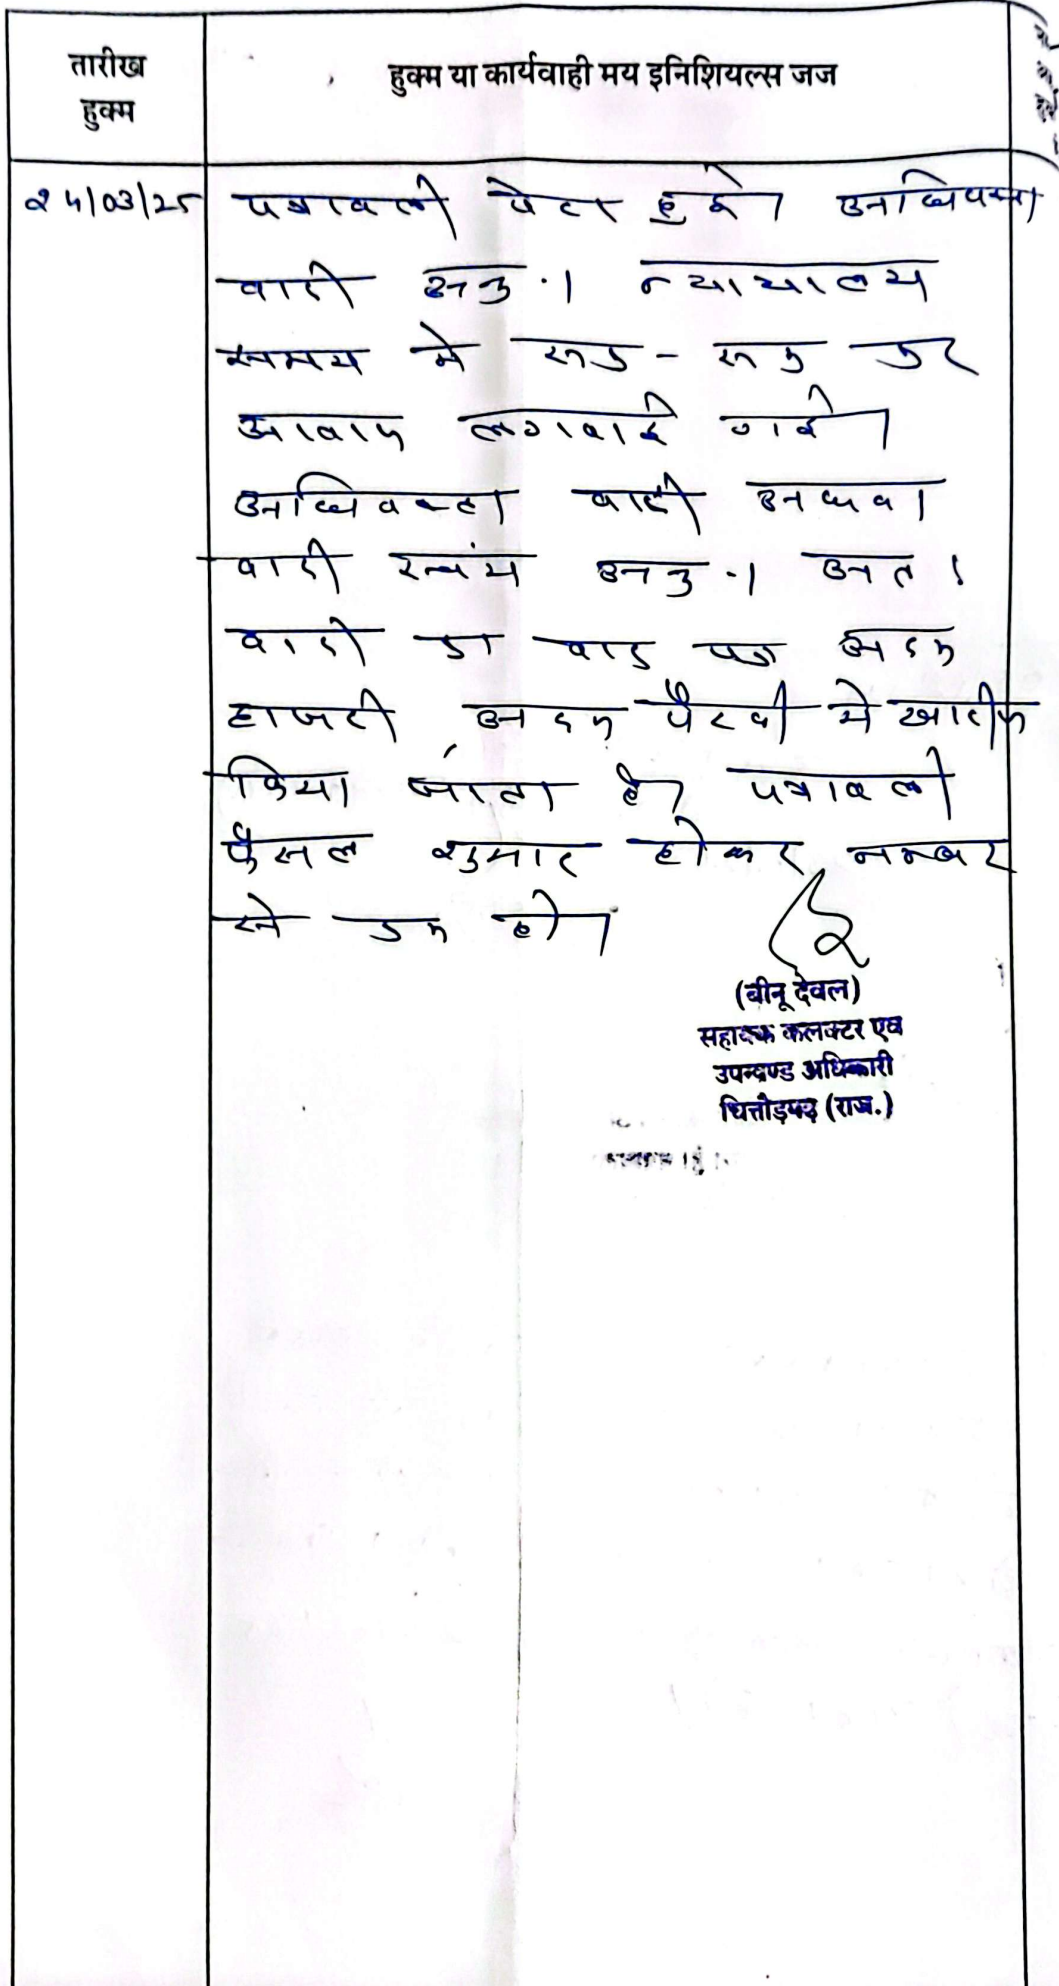 तारीख
हुक्म
हुक्म या कार्यवाही मय इनिशियल्स जज
24/03/25 पत्रावली पेश हुई। अधिवक्ता
वादी अनु.। न्यायालय
समय में रूक - रूक कर
आवाज लगवाई गई।
अधिवक्ता वादी अथवा
वादी स्वंय अनु.। अतः
वादी का वाद पत्र अदम
हाजरी अदम पैरवी में खारीज
किया जाता है। पत्रावली
फैसल शुमार होकर नम्बर
से कम हो।
(बीनू देवल)
सहायक कलक्टर एवं
उपखण्ड अधिकारी
चित्तौड़गढ़ (राज.)